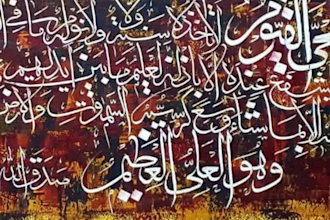 الحي القيوم لا تأخذه سنة ولا نوم له ما في
يشفع عنده إلا بإذنه يعلم ما بين أيديهم
إلا بما شاء وسع كرسيه السموت والأرض
وهو العلي العظيم صدق الله